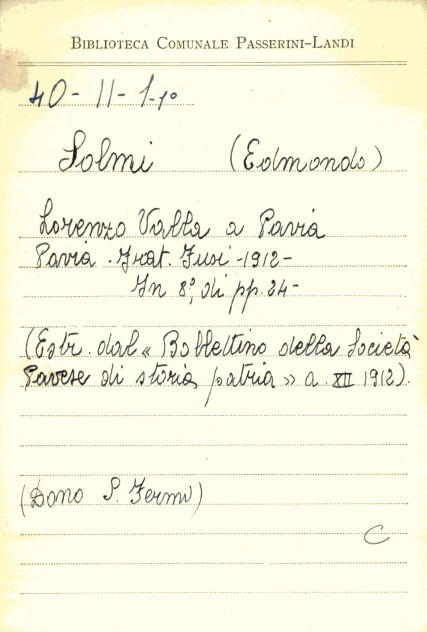 BIBLIOTECA COMUNALE PASSERINI-LANDI
40-II-1-10
Solmi (Edmondo)
Lorenzo Valla a Pavia
Pavia. Frat. Fusi -1912-
In 8°, di pp. 24-
(Estr. dal « Bollettino della Società
Pavese di storia patria » a. XII 1912).
(Dono S. Fermi)
C